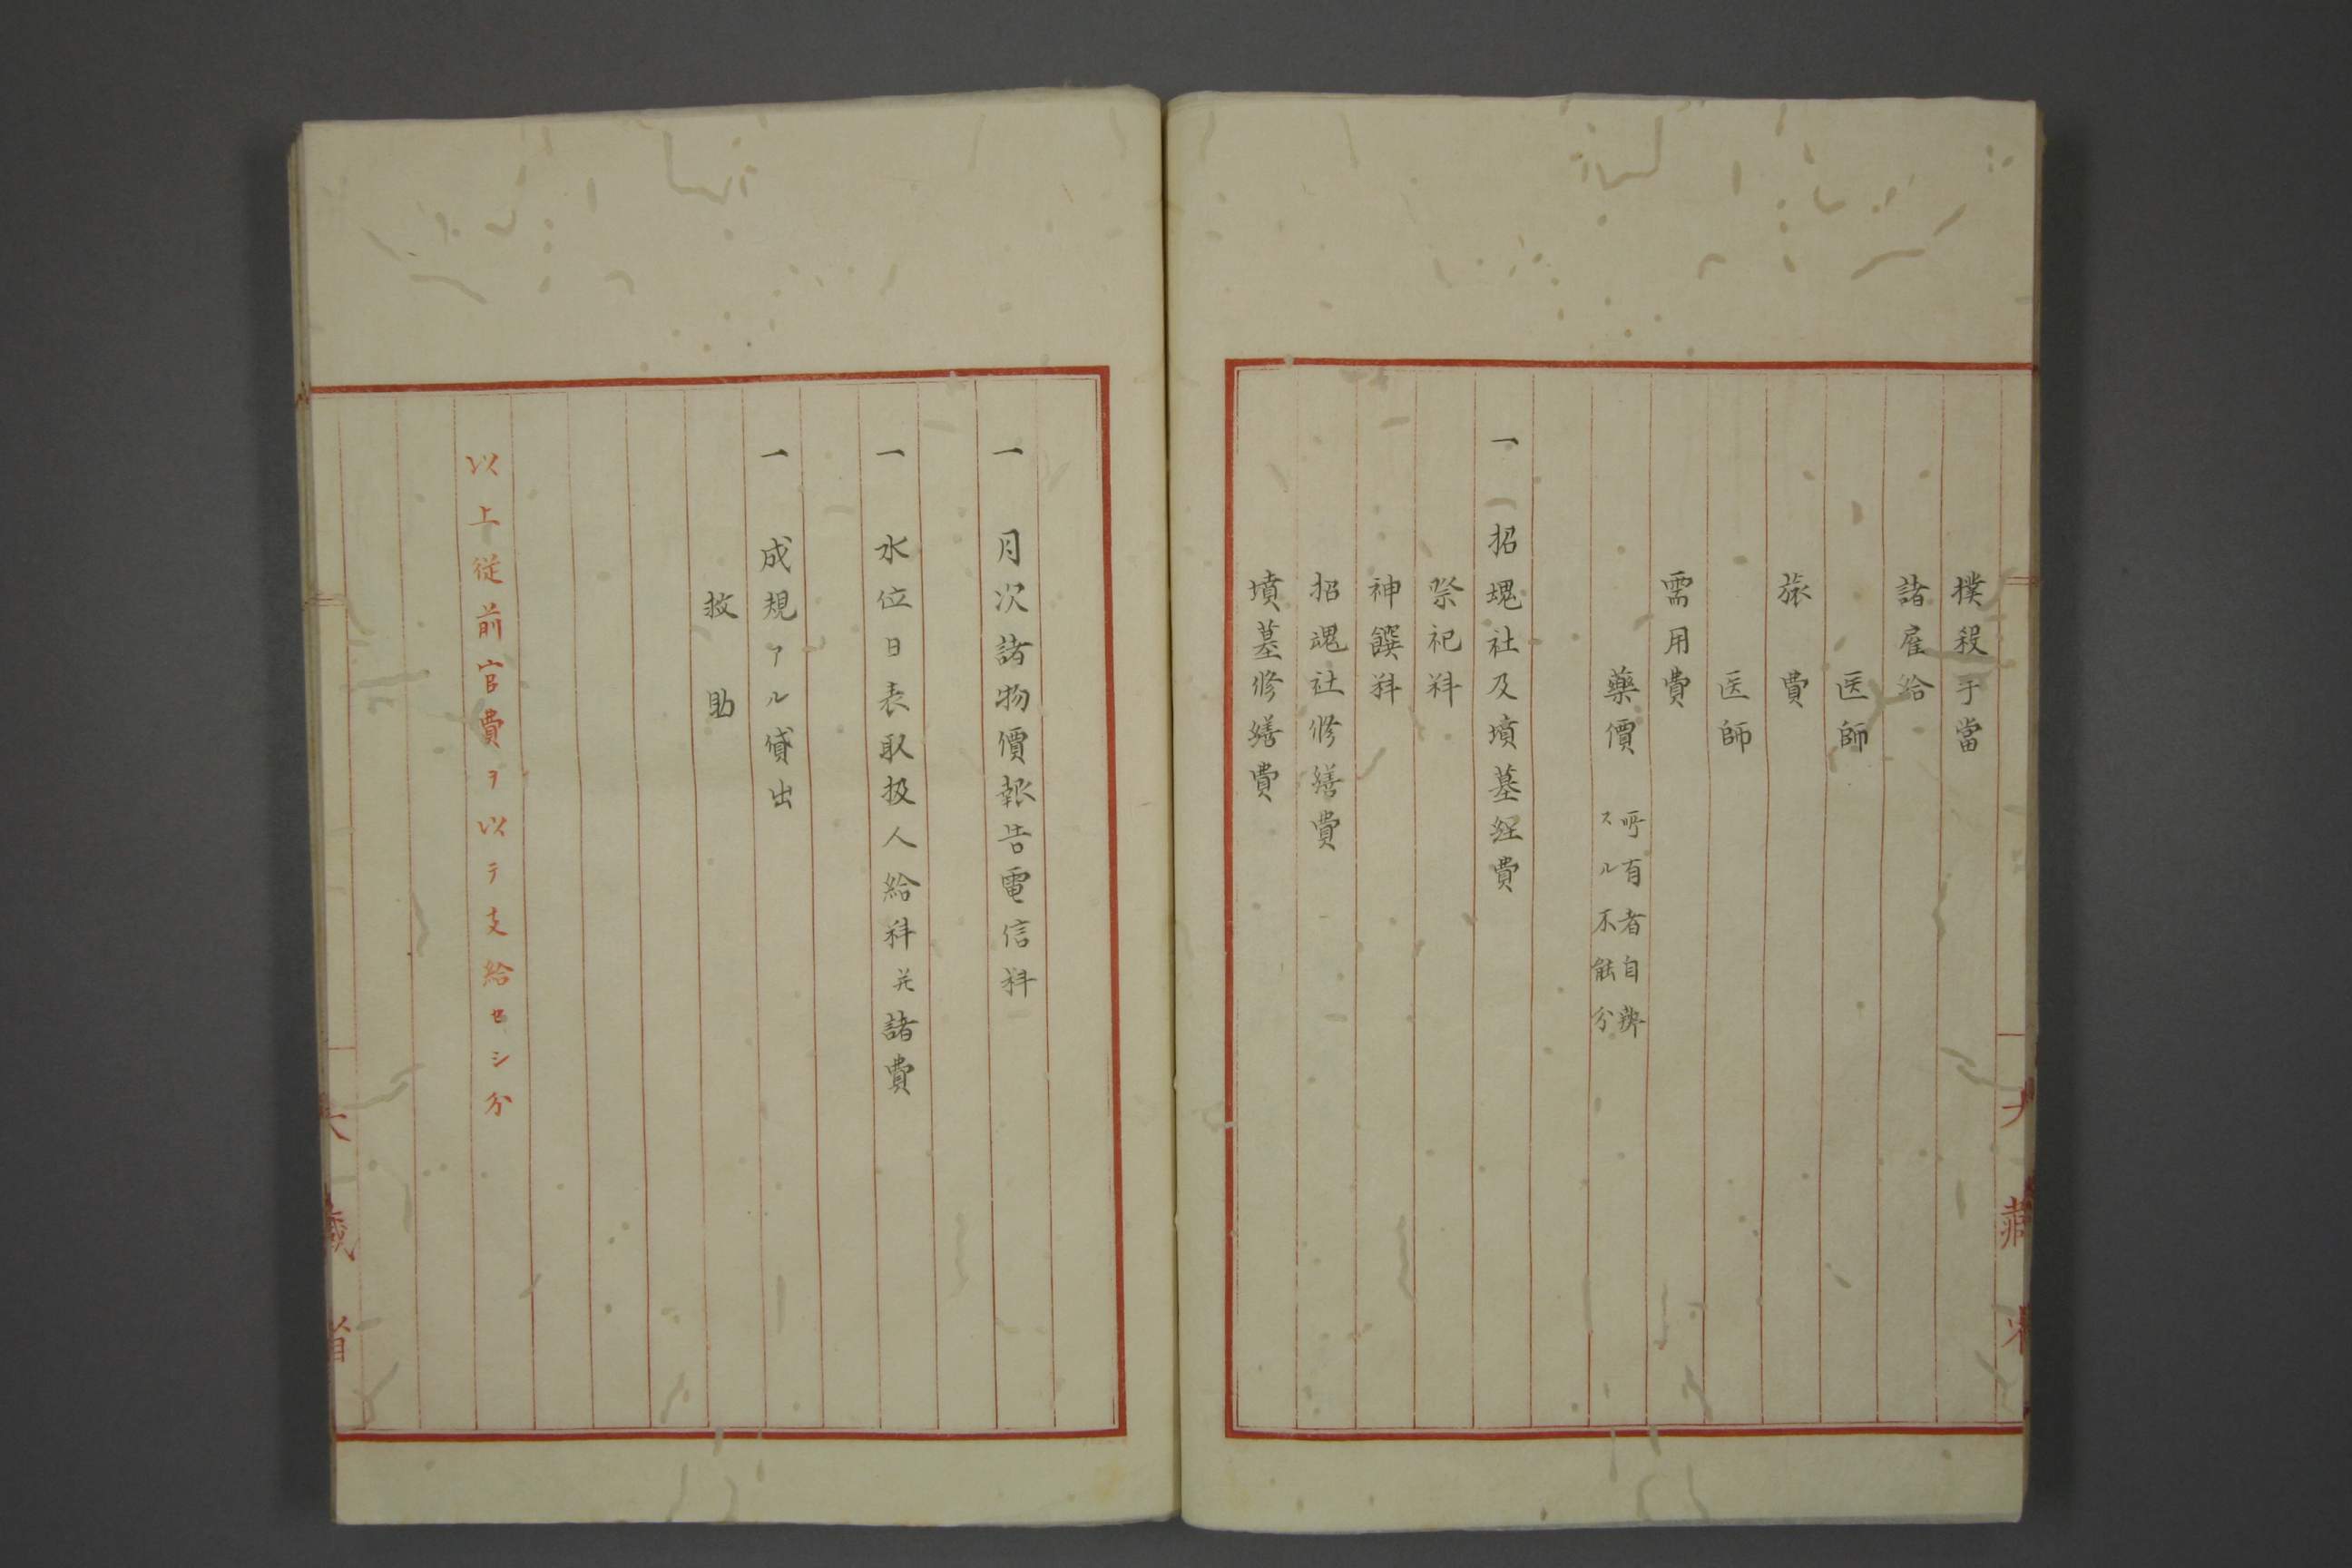 撲殺手當
諸雇給
医師
旅費
医師
需用費
藥價 所有者自辨スル不能分
一 招魂社及墳墓経費
祭祀料
神饌料
招魂社修繕費
墳墓修繕費
大藏省
一 月次諸物價報告電信料
一 水位日表取扱人給料并諸費
一 成規アル貸出
救助
以上従前官費ヲ以テ支給セシ分
大藏省